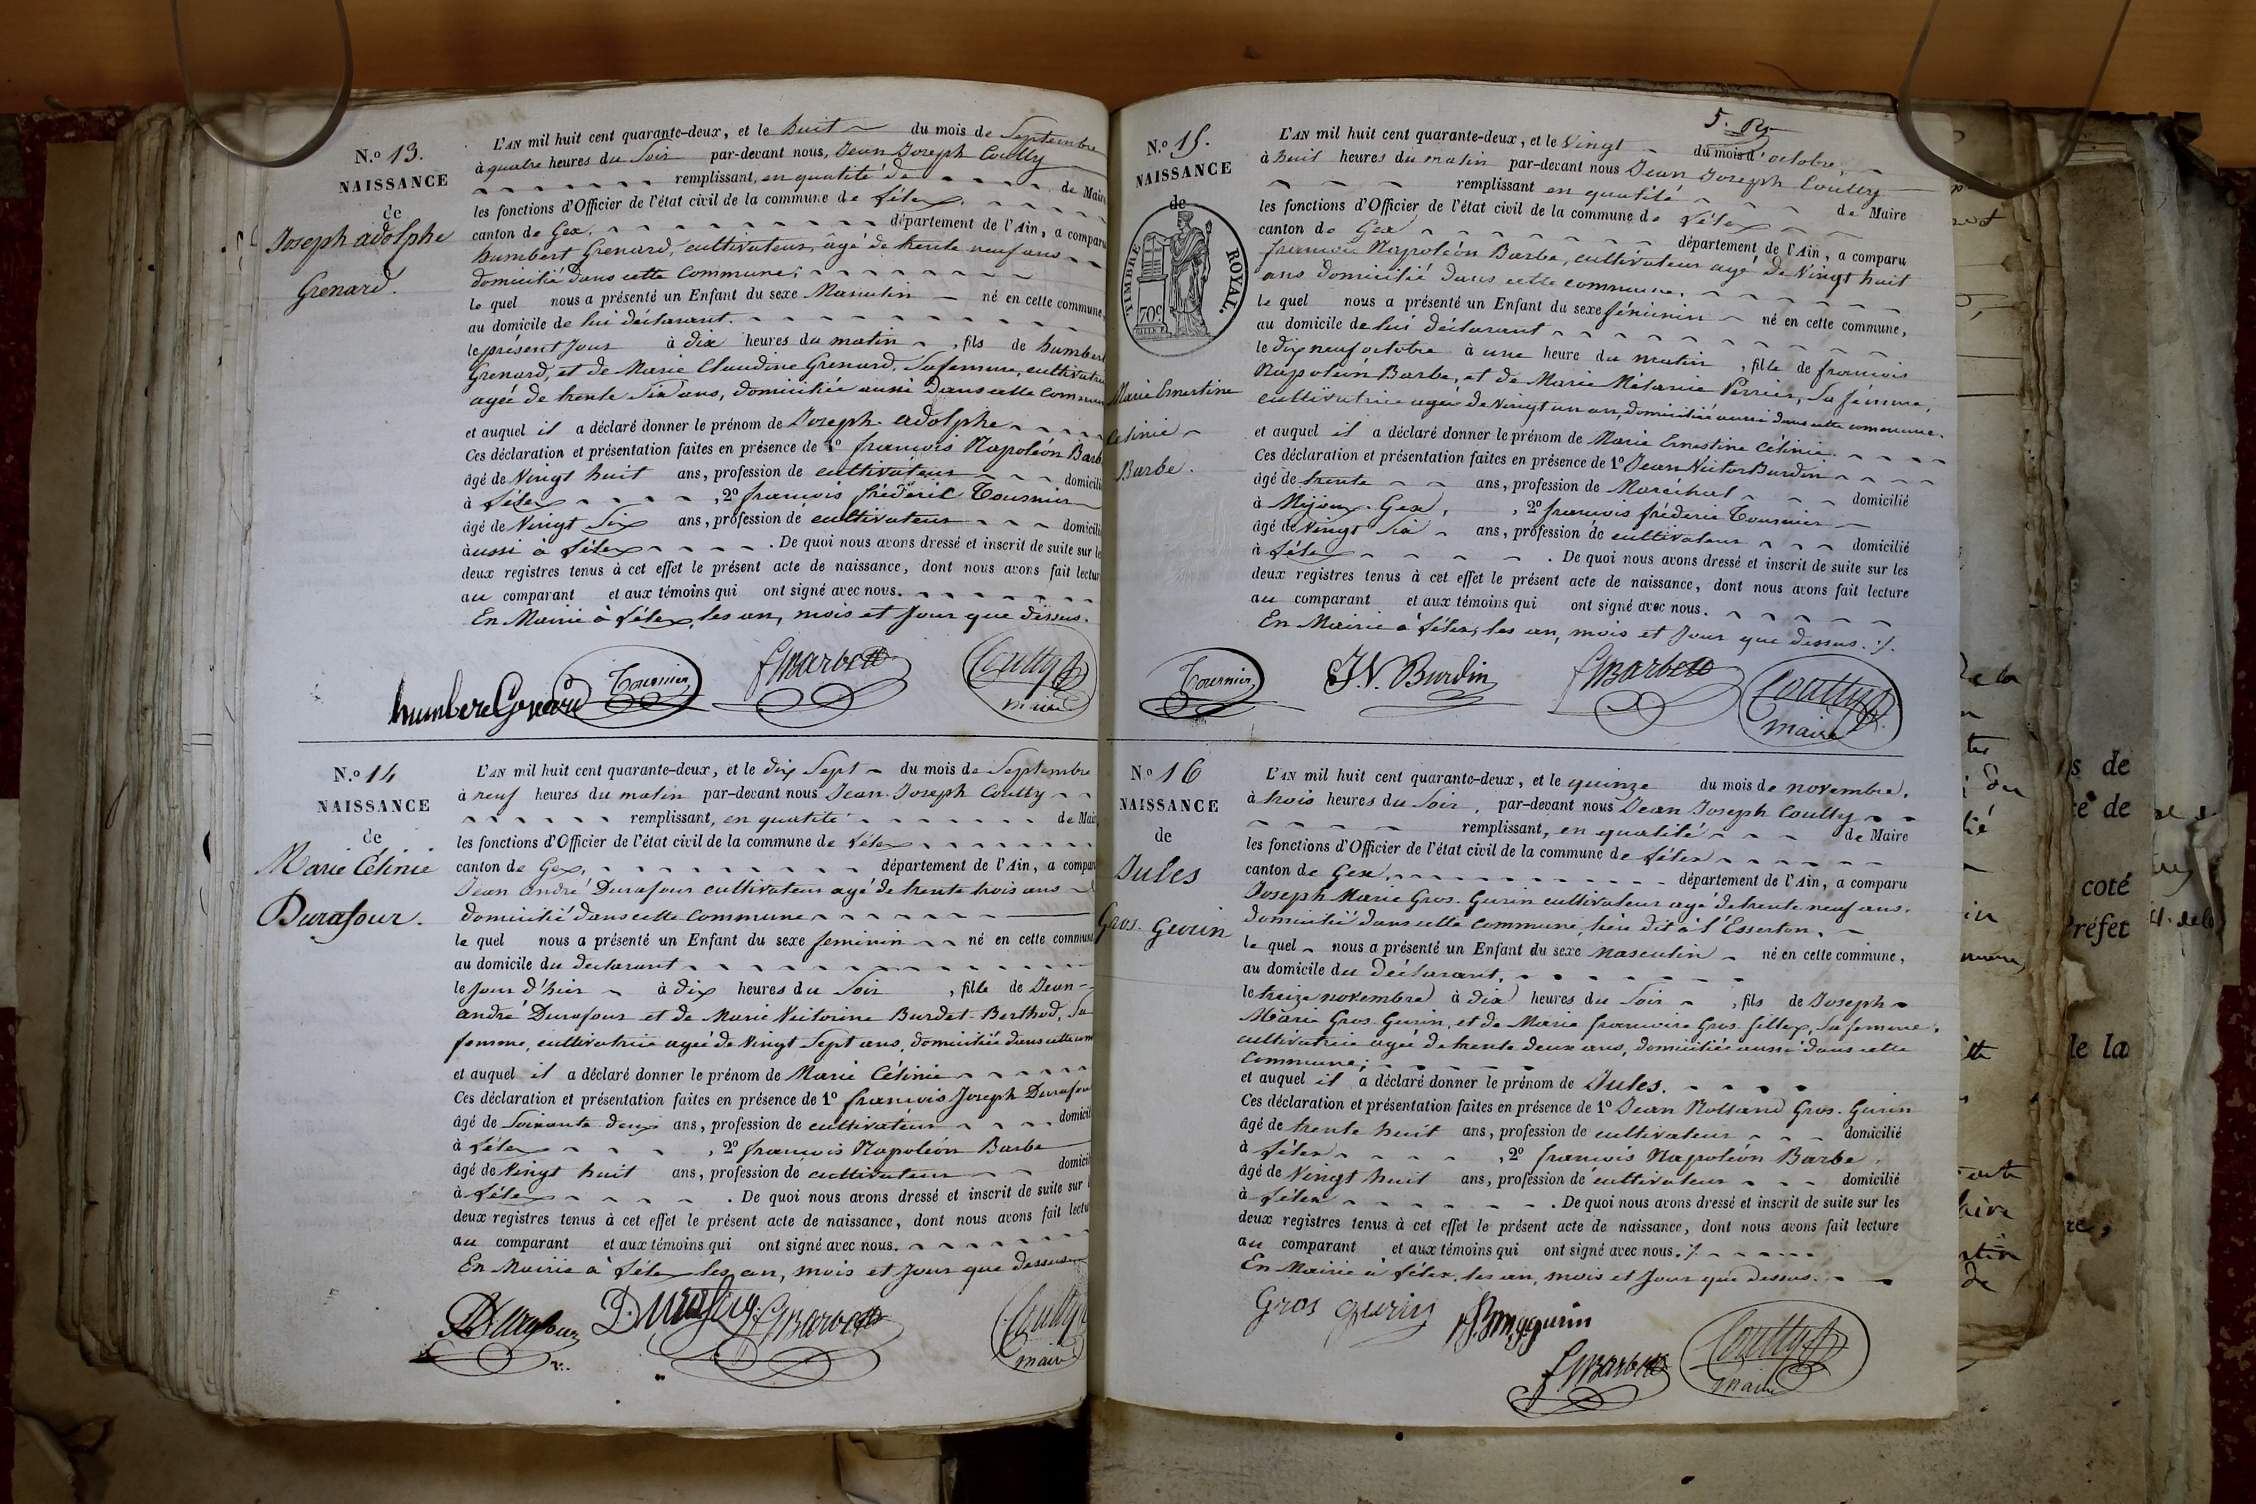 N.o 13.
NAISSANCE
de
Joseph adolphe
Grenard.
L'AN mil huit cent quarante-deux, et le huit du mois de Septembre
à quatre heures du Soir par-devant nous, Jean Joseph Coutty
remplissant, en qualité de de Maire
les fonctions d'Officier de l'état civil de la commune de Lélex,
canton de Gex, département de l'Ain, a comparu
humbert Grenard, cultivateur, âgé de trente neuf ans
domicilié dans cette commune;
le quel nous a présenté un Enfant du sexe Masculin né en cette commune,
au domicile de lui déclarant.
le présent Jour à dix heures du matin, fils de humbert
Grenard, et de Marie Claudine Grenard, Sa femme, cultivatrice
agée de trente Six ans, domiciliée aussi dans cette commune
et auquel il a déclaré donner le prénom de Joseph adolphe
Ces déclaration et présentation faites en présence de 1º françois Napoléon Barbe
âgé de Vingt huit ans, profession de cultivateur domicilié
à Lélex, 2º françois fréderic Tournier
âgé de Vingt Six ans, profession de cultivateur domicilié
aussi à Lélex. De quoi nous avons dressé et inscrit de suite sur le
deux registres tenus à cet effet le présent acte de naissance, dont nous avons fait lectur
au comparant et aux témoins qui ont signé avec nous.
En Mairie à Lélex, les an, mois et Jour que dessus.
humbert Grenard Tournier fNBarbe Coutty
maire
N.o 14
NAISSANCE
de
Marie Célinie
Durafour.
L'AN mil huit cent quarante-deux, et le dix Sept du mois de Septembre
à neuf heures du matin par-devant nous Jean Joseph Coutty
remplissant, en qualité de Mair
les fonctions d'Officier de l'état civil de la commune de Lélex
canton de Gex, département de l'Ain, a compar
Jean andré Durafour cultivateur agé de trente trois ans
domicilié dans cette commune
le quel nous a présenté un Enfant du sexe feminin né en cette commune
au domicile du declarant
le Jour d'hier à dix heures du Soir, fille de Jean
andré Durafour et de Marie Victorine Burdet-Berthod, Sa
femme, cultivatrice agée de Vingt Sept ans, domiciliée dans cette com
et auquel il a déclaré donner le prénom de Marie Célinie
Ces déclaration et présentation faites en présence de 1º françois Joseph Durafour
âgé de Soixante deux ans, profession de cultivateur domicil
à Lélex, 2º françois Napoléon Barbe
âgé de Vingt huit ans, profession de cultivateur domicil
à Lélex. De quoi nous avons dressé et inscrit de suite sur
deux registres tenus à cet effet le présent acte de naissance, dont nous avons fait lectu
au comparant et aux témoins qui ont signé avec nous.
En Mairie à Lélex les an, mois et Jour que dessus
Durafour fNBarbe Coutty
maire
5.
N.o 15.
NAISSANCE
de
TIMBRE ROYAL.
70c
Marie Ernestine
Celinie
Barbe.
L'AN mil huit cent quarante-deux, et le Vingt du mois d'octobre,
à huit heures du matin par-devant nous Jean Joseph Coutty
remplissant en qualité de Maire
les fonctions d'Officier de l'état civil de la commune de Lélex
canton de Gex département de l'Ain, a comparu
françois Napoléon Barbe, cultivateur agé de Vingt huit
ans domicilié dans cette commune.
le quel nous a présenté un Enfant du sexe féminin né en cette commune,
au domicile de lui déclarant
le dix neuf octobre à une heure du matin, fille de françois
Napoléon Barbe, et de Marie Mélanie Perrier, Sa femme,
cultivatrice agée de Vingt un an, domiciliée aussi dans cette commune.
et auquel il a déclaré donner le prénom de Marie Ernestine Célinie.
Ces déclaration et présentation faites en présence de 1º Jean Victor Burdin
âgé de trente ans, profession de Maréchal domicilié
à Mijoux-Gex, 2º françois fréderic Tournier
âgé de Vingt Six ans, profession de cultivateur domicilié
à Lélex. De quoi nous avons dressé et inscrit de suite sur les
deux registres tenus à cet effet le présent acte de naissance, dont nous avons fait lecture
au comparant et aux témoins qui ont signé avec nous.
En Mairie à Lélex, les an, mois et Jour que dessus.
Tournier J.V. Burdin fNBarbe Coutty
maire
N.o 16
NAISSANCE
de
Jules
Gros-Gurin
L'AN mil huit cent quarante-deux, et le quinze du mois de novembre.
à trois heures du Soir, par-devant nous Jean Joseph Coutty
remplissant, en qualité de Maire
les fonctions d'Officier de l'état civil de la commune de Lélex
canton de Gex, département de l'Ain, a comparu
Joseph Marie Gros-Gurin cultivateur agé de trente neuf ans.
domicilié dans cette commune, lieu dit à l'Esserton.
le quel nous a présenté un Enfant du sexe masculin né en cette commune,
au domicile du déclarant,
le treize novembre à dix heures du Soir, fils de Joseph
Marie Gros-Gurin, et de Marie françoise Gros-fillex, Sa femme,
cultivatrice agée de trente deux ans, domiciliée aussi dans cette
commune;
et auquel il a déclaré donner le prénom de Jules.
Ces déclaration et présentation faites en présence de 1º Jean Rolland Gros-Gurin
âgé de trente huit ans, profession de cultivateur domicilié
à Lélex, 2º françois Napoléon Barbe.
âgé de Vingt huit ans, profession de cultivateur domicilié
à Lélex. De quoi nous avons dressé et inscrit de suite sur les
deux registres tenus à cet effet le présent acte de naissance, dont nous avons fait lecture
au comparant et aux témoins qui ont signé avec nous.
En Mairie à Lélex, les an, mois et Jour que dessus.
Gros gurin
fNBarbe Coutty
maire
de la
du
s de
de
coté
Préfet
de la